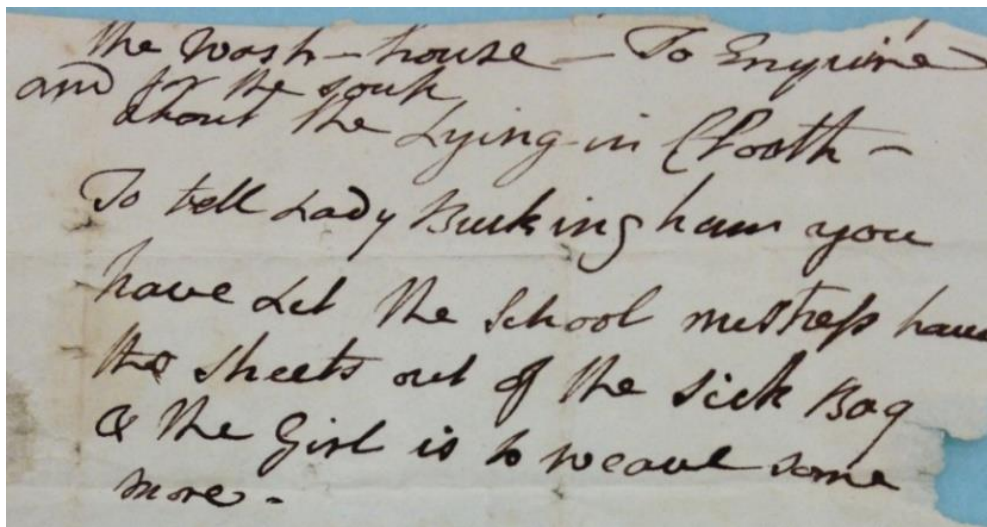 the Wash-house - To Enquire
and for the soup
about the Lying-in Cloath -
To tell Lady Buckingham you
have Let the School mistress have
the sheets out of the sick Bag
& the Girl is to weave some
more -